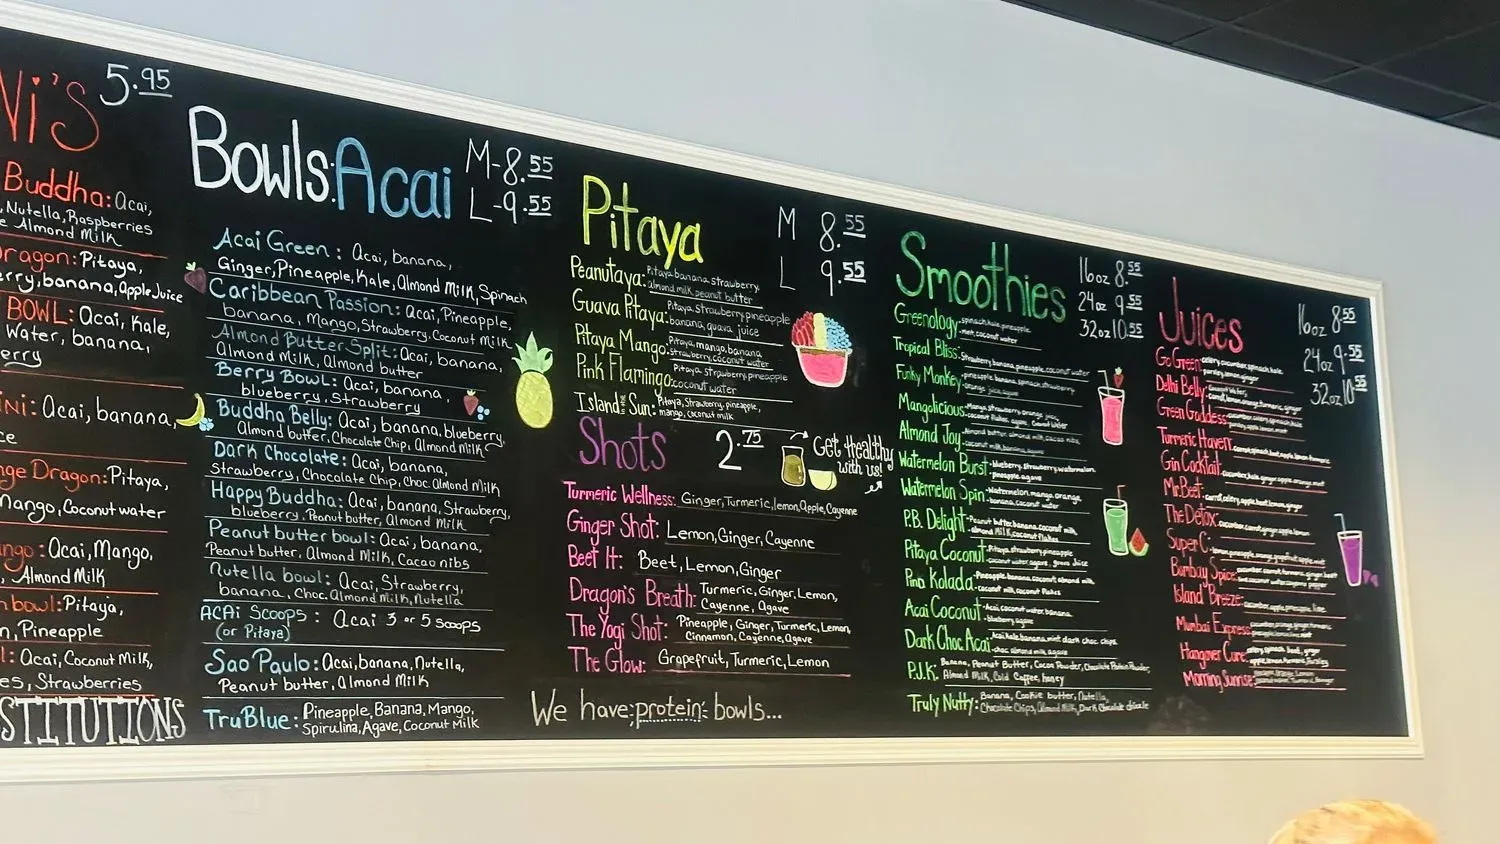 Ni's 5.95
Buddha: Acai,
, Nutella, Raspberries
Almond Milk
Dragon: Pitaya,
erry, banana, Apple Juice
BOWL: Acai, Kale,
Water, banana,
erry
INI: Acai, banana,
ce
nge Dragon: Pitaya,
Mango, Coconut water
ngo: Acai, Mango,
, Almond Milk
bowl: Pitaya,
n, Pineapple
l: Acai, Coconut Milk,
es, Strawberries
STITUTIONS
Bowls: Acai M-8.55
L-9.55
Acai Green: Acai, banana,
Ginger, Pineapple, Kale, Almond Milk, Spinach
Caribbean Passion: Acai, Pineapple,
banana, Mango, Strawberry, Coconut Milk
Almond Butter Split: Acai, banana,
Almond Milk, Almond butter
Berry Bowl: Acai, banana,
blueberry, Strawberry
Buddha Belly: Acai, banana, blueberry,
Almond butter, Chocolate Chip, Almond Milk
Dark Chocolate: Acai, banana,
Strawberry, Chocolate Chip, Choc. Almond Milk
Happy Buddha: Acai, banana, Strawberry,
blueberry, Peanut butter, Almond Milk
Peanut butter bowl: Acai, banana,
Peanut butter, Almond Milk, Cacao nibs
Nutella bowl: Acai, Strawberry,
banana, Choc. Almond Milk, Nutella
ACAi Scoops: Acai 3 or 5 scoops
(or Pitaya)
Sao Paulo: Acai, banana, Nutella,
Peanut butter, Almond Milk
TruBlue: Pineapple, Banana, Mango,
Spirulina, Agave, Coconut Milk
Pitaya M 8.55
L 9.55
Peanutaya: Pitaya banana, strawberry,
almond milk, peanut butter
Guava Pitaya: Pitaya, strawberry, pineapple
banana, guava juice
Pitaya Mango: Pitaya, mango, banana
strawberry, coconut water
Pink Flamingo: Pitaya, strawberry, pineapple
coconut water
Island in the Sun: Pitaya, Strawberry, pineapple,
mango, coconut milk
Shots 2.75
Get Healthy
with us!
Turmeric Wellness: Ginger, Turmeric, lemon, Apple, Cayenne
Ginger Shot: Lemon, Ginger, Cayenne
Beet It: Beet, Lemon, Ginger
Dragon's Breath: Turmeric, Ginger, Lemon,
Cayenne, Agave
The Yogi Shot: Pineapple, Ginger, Turmeric, Lemon,
Cinnamon, Cayenne, Agave
The Glow: Grapefruit, Turmeric, Lemon
We have protein bowls...
Smoothies 16oz 8.55
24oz 9.55
32oz 10.55
Greenology: spinach, kale, pineapple,
coconut water
Tropical Bliss: Strawberry, banana, pineapple, coconut water
Funky Monkey: pineapple, banana, spinach, strawberry
Mangolicious: Mango, strawberry, orange juice,
coconut flakes, coconut water
Almond Joy: Almond butter, almond milk, cacao nibs,
Watermelon Burst: blueberry, strawberry, watermelon,
pineapple agave
Watermelon Spin: Watermelon, mango, orange,
banana, coconut water
P.B. Delight: Peanut butter, banana, coconut milk,
almond Milk, coconut flakes
Pitaya Coconut: Pitaya, strawberry, pineapple
coconut water, agave
Pina Kolada: Pineapple, banana, coconut, almond milk,
coconut milk, coconut flakes
Acai Coconut: Acai, coconut water, banana,
blueberry, agave
Dark Choc Acai: Acai, kale, banana, mint dark choc. chips,
choc. almond milk, agave
P.J.K: Banana, Peanut Butter, Cocoa Powder, Chocolate Protein Powder,
Almond Milk, Cold Coffee, honey
Truly Nutty: Banana, Cookie butter, Nutella,
Chocolate Chips, Almond Milk, Dark Chocolate
Juices 16oz 8.55
24oz 9.55
32oz 10.55
Go Green: celery, cucumber, spinach, kale,
parsley, lemon, ginger
Delhi Belly: Coconut Water,
carrot, lemon, orange, turmeric, ginger
Green Goddess:
Turmeric Haven:
Gin Cocktail:
Mr Beet: carrot, celery, apple, beet, lemon, ginger
The Detox: cucumber, carrot, ginger, apple, lemon
Super C:
Bombay Spice:
Island Breeze: cucumber, apple, pineapple, lime
Mumbai Express:
Hangover Cure: celery, spinach, beet, ginger
apple, lemon, turmeric, Parsley
Morning Sunrise: